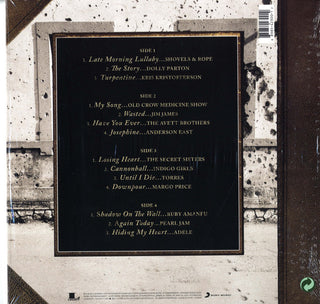 SIDE 1
1. Late Morning Lullaby...SHOVELS & ROPE
2. The Story...DOLLY PARTON
3. Turpentine...KRIS KRISTOFFERSON
SIDE 2
1. My Song...OLD CROW MEDICINE SHOW
2. Wasted...JIM JAMES
3. Have You Ever...THE AVETT BROTHERS
4. Josephine...ANDERSON EAST
SIDE 3
1. Losing Heart...THE SECRET SISTERS
2. Cannonball...INDIGO GIRLS
3. Until I Die...TORRES
4. Downpour...MARGO PRICE
SIDE 4
1. Shadow On The Wall...RUBY AMANFU
2. Again Today...PEARL JAM
3. Hiding My Heart...ADELE